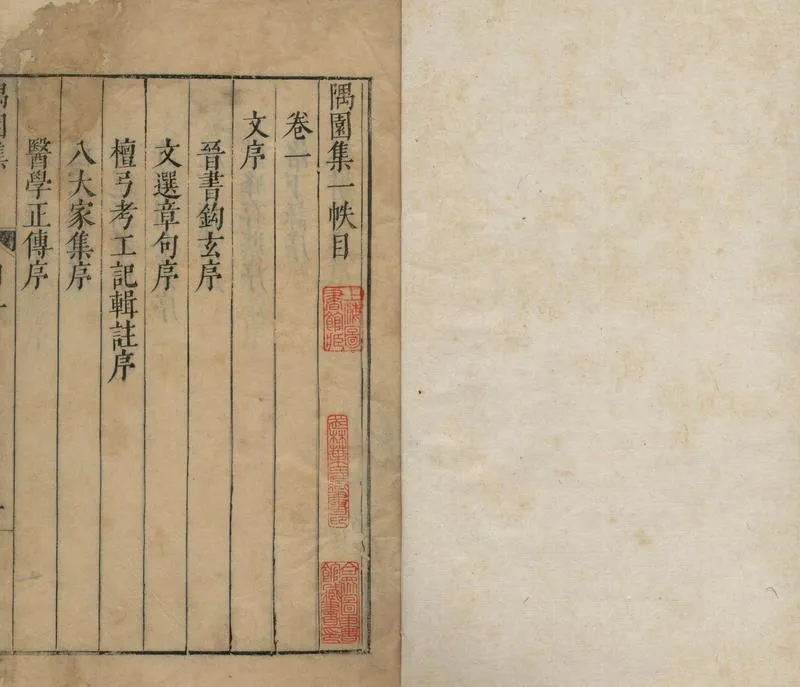 隅園集一帙目
卷一
文序
晉書鈎玄序
文選章句序
檀弓考工記輯註序
八大家集序
醫學正傳序
隅園集
上海圖書館藏